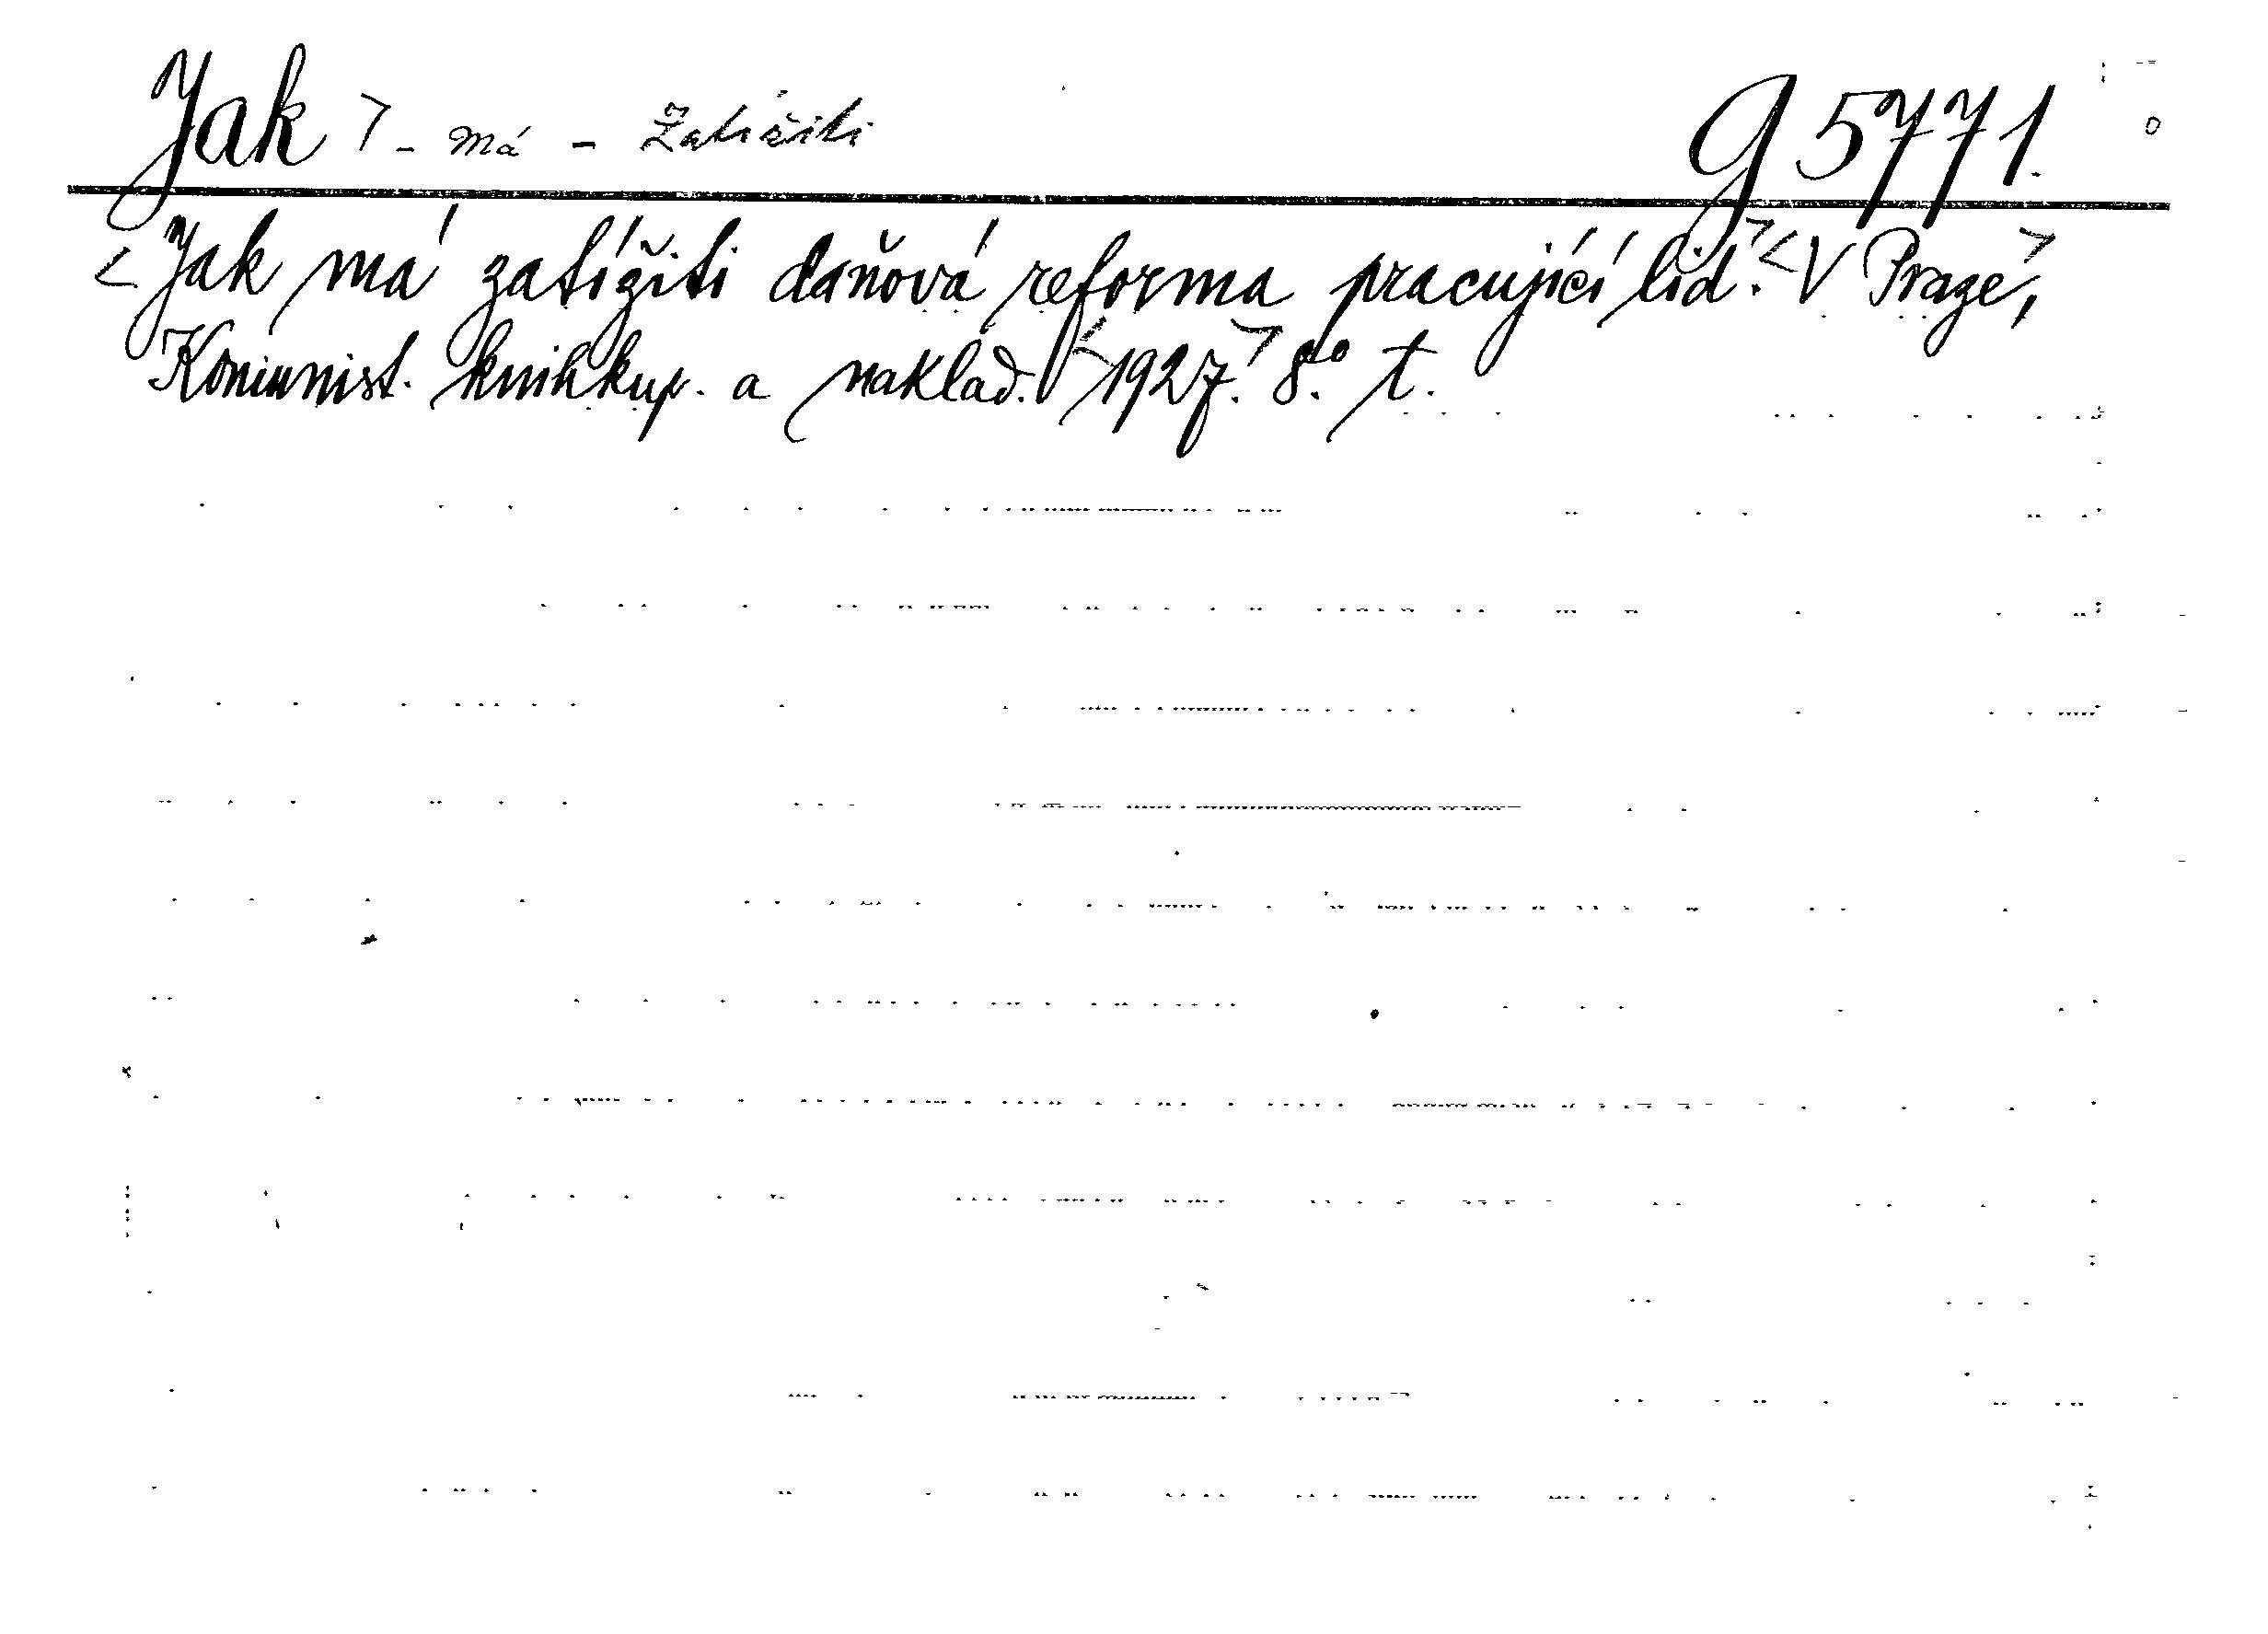 Jak > - má - Zatížiti g 5771.
<Jak má zatížiti daňová reforma pracující lid.> <V Praze>,
Komunist. knihkup. a naklad. <1927.> 8.º t.